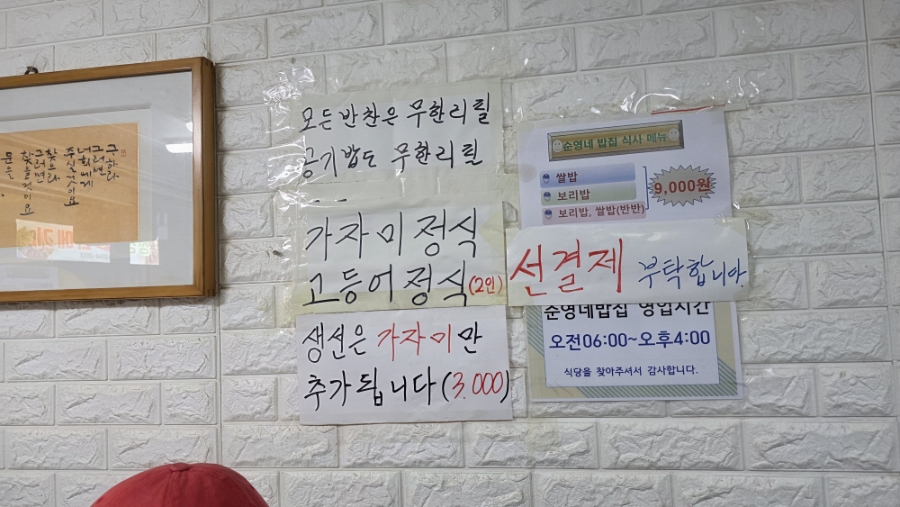 모든반찬은 무한리필
공기밥도 무한리필
...
가자미정식
고등어정식(2인)
생선은 가자미만
추가됩니다(3.000)
순영네 밥집 식사 메뉴
쌀밥
보리밥
보리밥, 쌀밥(반반)
9,000원
선결제 부탁합니다.
순영네밥집 영업시간
오전06:00~오후4:00
식당을 찾아주셔서 감사합니다.
구하라
그러면
너희에게
주실것이요
찾으라
그러면
찾을것이요
문은